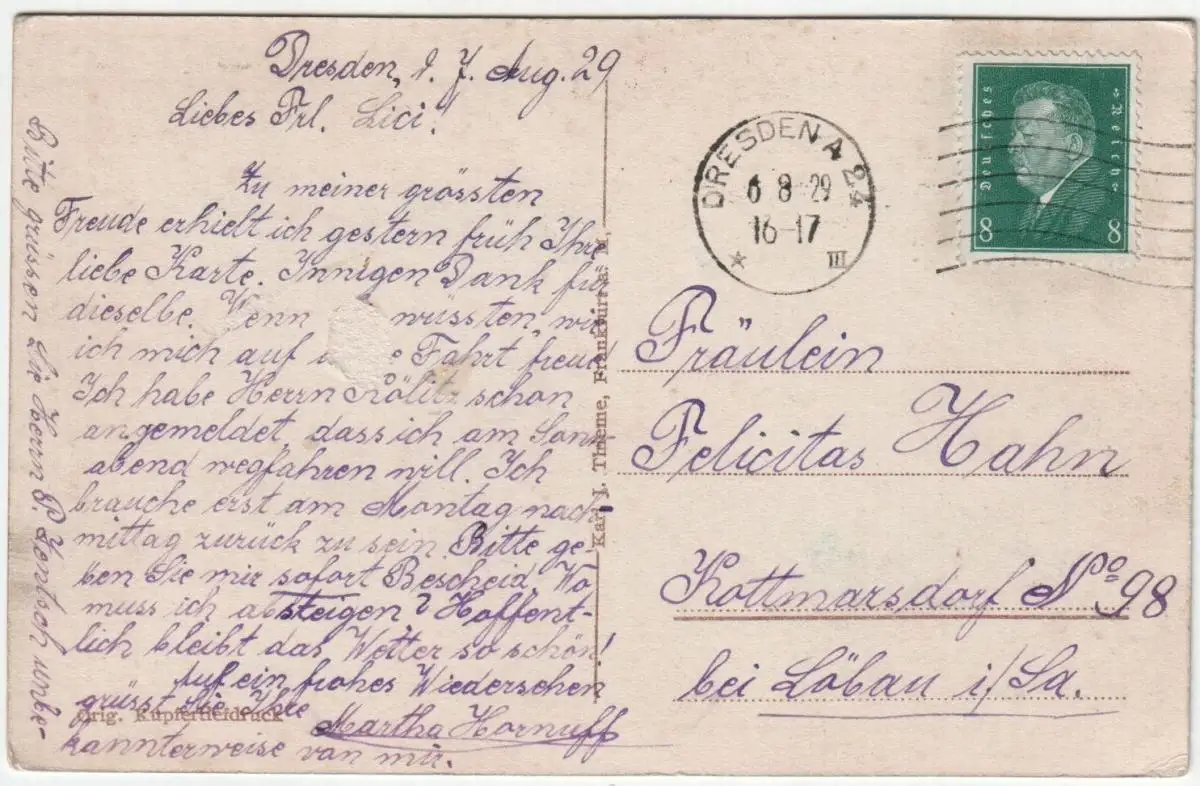 Dresden, d. 7. Aug. 29
Liebes Frl. Lici!
Zu meiner grössten
Freude erhielt ich gestern früh Ihre
liebe Karte. Innigen Dank für
dieselbe. Wenn wüssten, wie
ich mich auf Fahrt freue
Ich habe Herrn schon
angemeldet, dass ich am Sonn-
abend wegfahren will. Ich
brauche erst am Montag nach-
mittag zurück zu sein. Bitte ge-
ben Sie mir sofort Bescheid. Wo
muss ich absteigen? Hoffent-
lich bleibt das Wetter so schön!
Auf ein frohes Wiedersehen
grüsst Sie Ihre
Martha Hornuff
Bitte grüssen Sie Herrn P. unbe-
kannterweise von mir.
Orig. Kupfertiefdruck
Karl J. Thieme, Frankfurt a. M.
DRESDEN A 24
6 8 29
16-17
III
Deutsches Reich
8 8
Fräulein
Felicitas Hahn
Kottmarsdorf No 98
bei Löbau i/Sa.